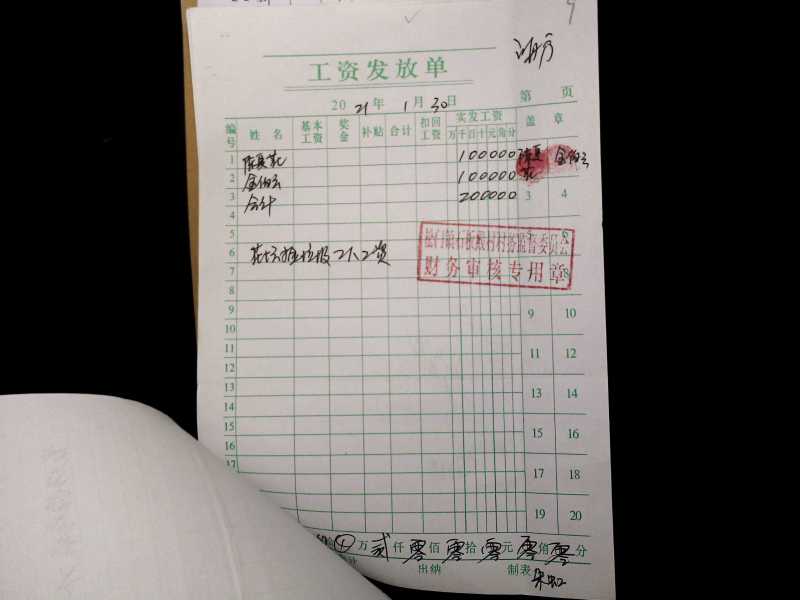 工资发放单
2021年1月30日
第 页
编号 姓名 基本工资 奖金 补贴 合计 扣回工资 实发工资 万千百十元角分 盖章
1 陈夏花 100000 陈夏花 金仙云
2 金仙云 100000
3 合计 200000 3 4
4
5
松门镇石板殿村村务监督委员会
6 垃圾 工资
7 财务审核专用章 8
8
9 9 10
10
11 11 12
12
13 13 14
14
15 15 16
16
17 17 18
19 20
万贰仟零佰零拾零元零角零分
出纳 制表